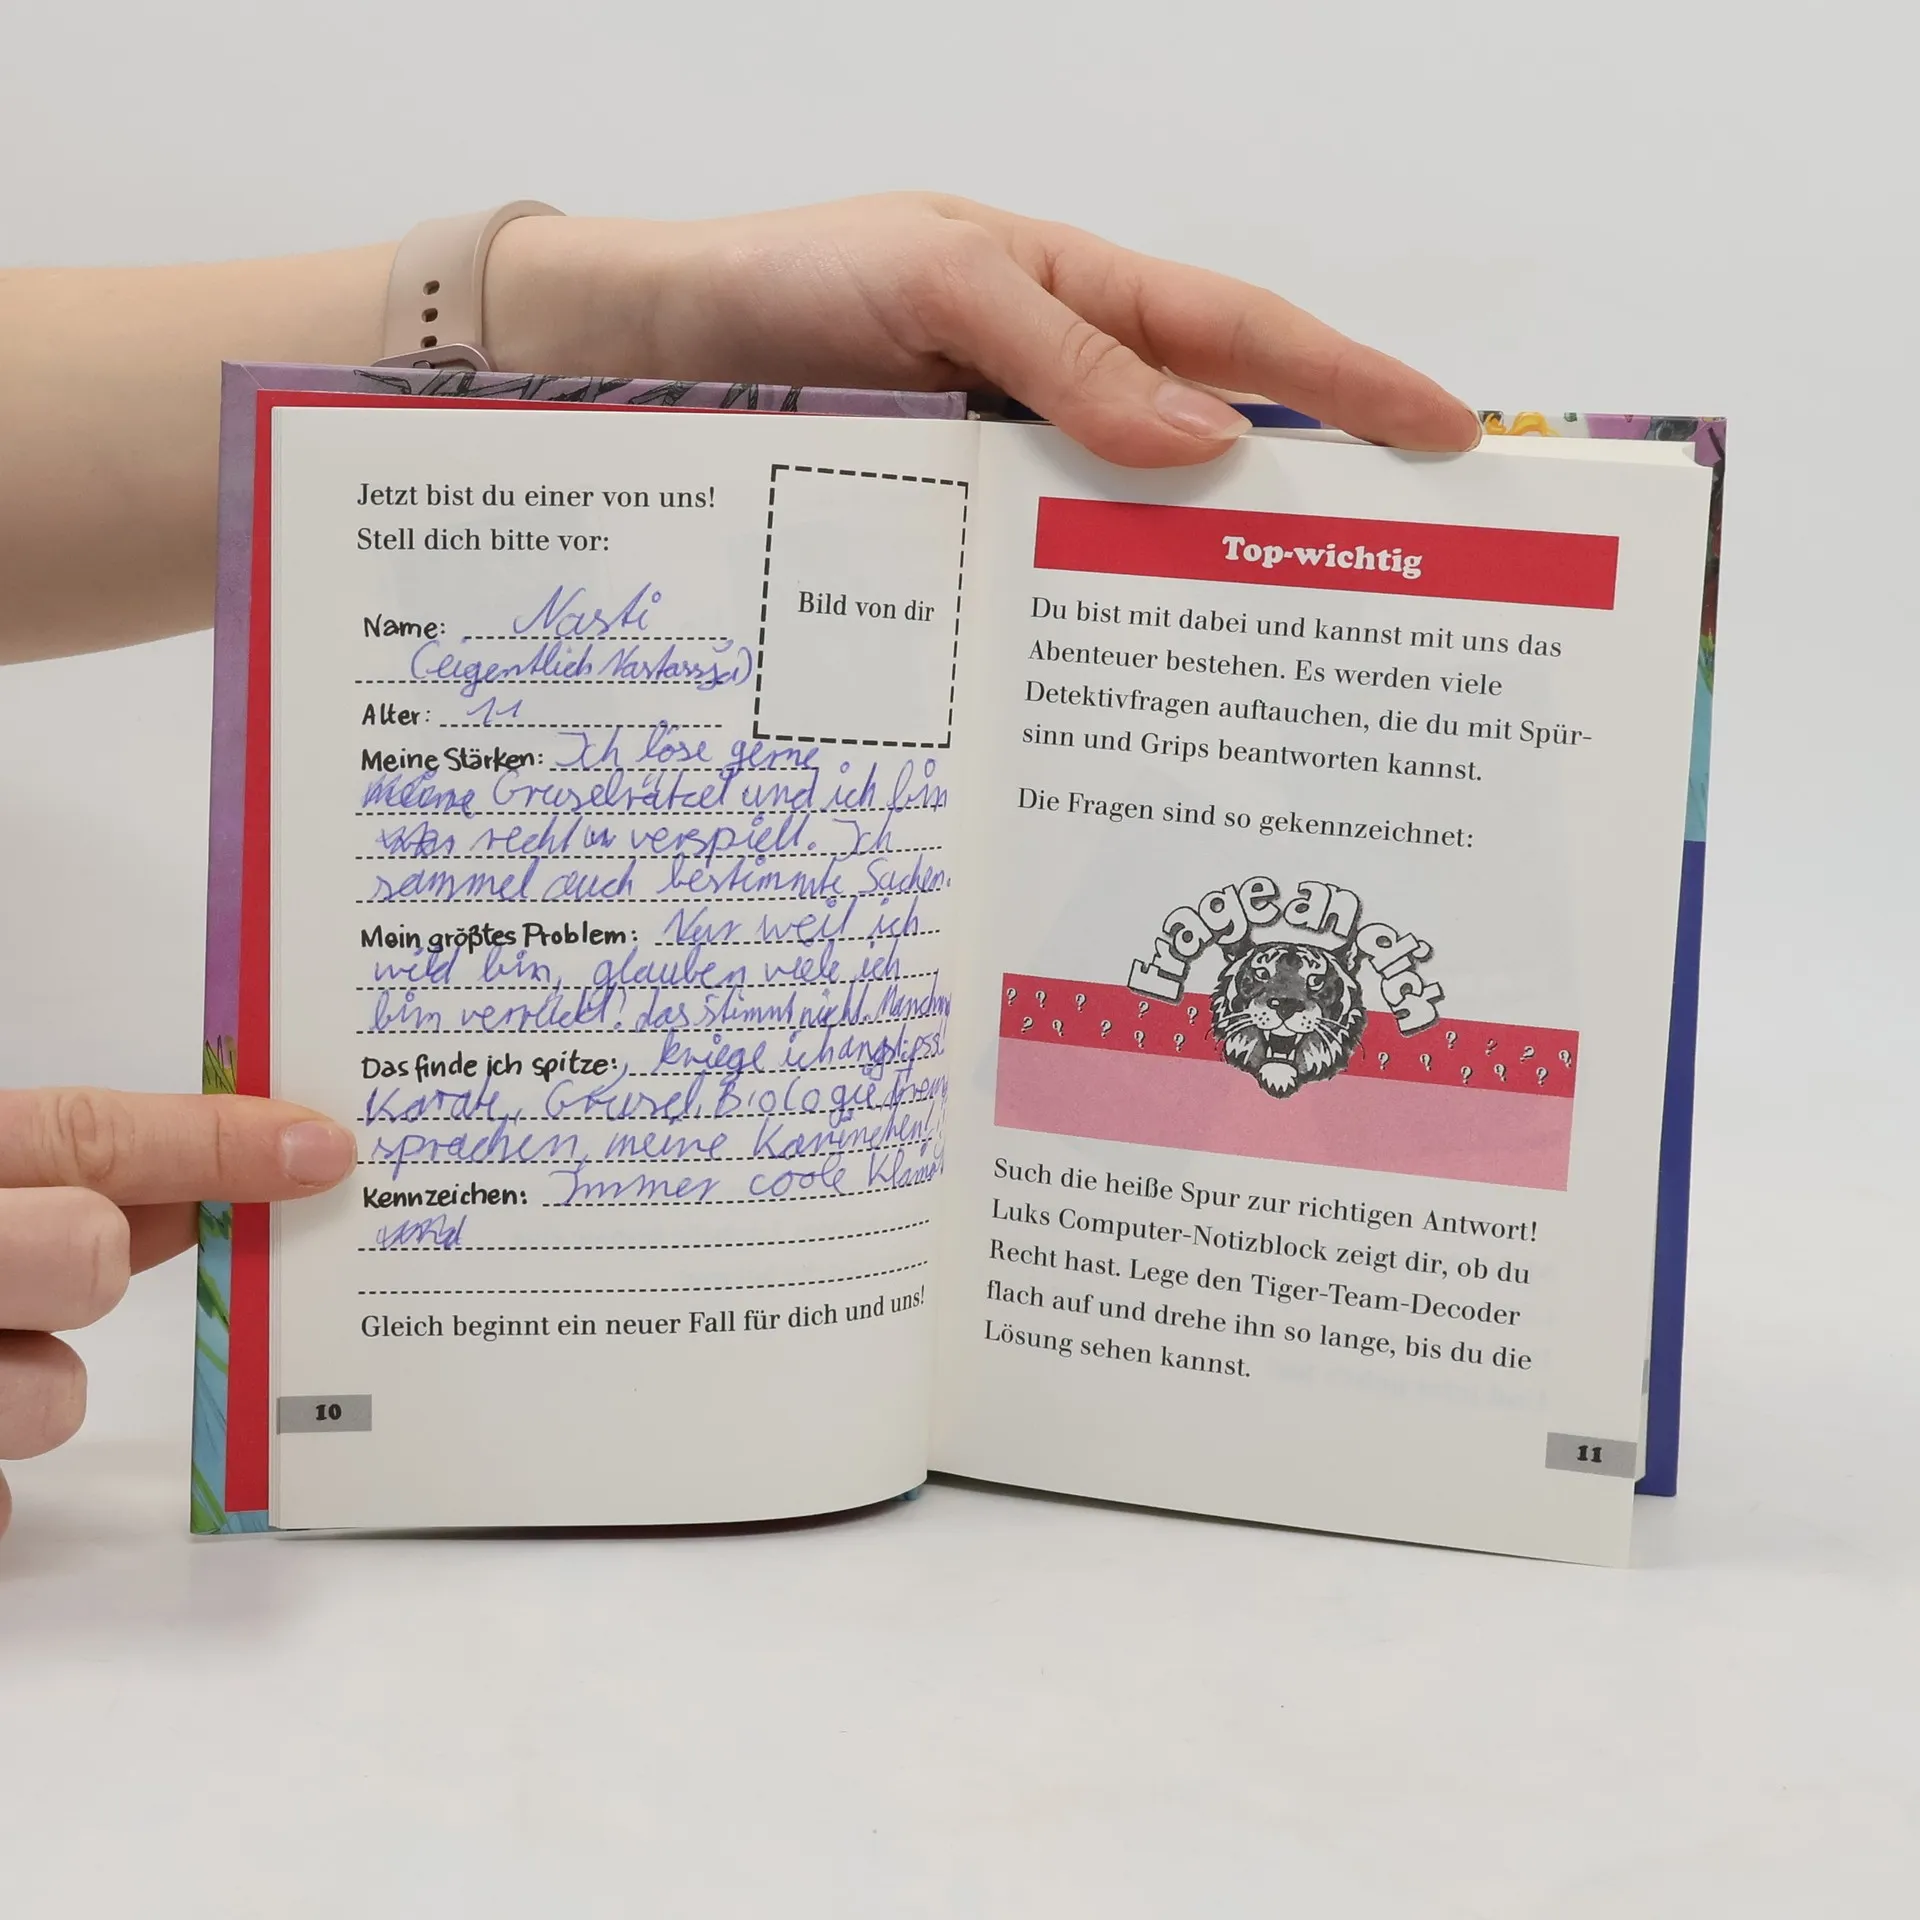 Jetzt bist du einer von uns!
Stell dich bitte vor:
Bild von dir
Name: Nasti
(eigentlich Nastassja)
Alter: 11
Meine Stärken: Ich löse gerne
Gruselrätzel und ich bin
recht verspielt. Ich
sammel auch bestimmte Sachen.
Mein größtes Problem: Nur weil ich
wild bin, glauben viele ich
bin verrückt! das stimmt nicht. Manchmal
Das finde ich spitze: kriege ich angst, psst!
Karate, Grusel, Biologie, Frem
sprachen, meine Kaninchen!
Kennzeichen: Immer coole
Gleich beginnt ein neuer Fall für dich und uns!
10
Top-wichtig
Du bist mit dabei und kannst mit uns das
Abenteuer bestehen. Es werden viele
Detektivfragen auftauchen, die du mit Spür-
sinn und Grips beantworten kannst.
Die Fragen sind so gekennzeichnet:
Frage an dich
? ? ? ? ? ? ? ? ?
? ? ? ? ? ? ? ? ?
Such die heiße Spur zur richtigen Antwort!
Luks Computer-Notizblock zeigt dir, ob du
Recht hast. Lege den Tiger-Team-Decoder
flach auf und drehe ihn so lange, bis du die
Lösung sehen kannst.
11